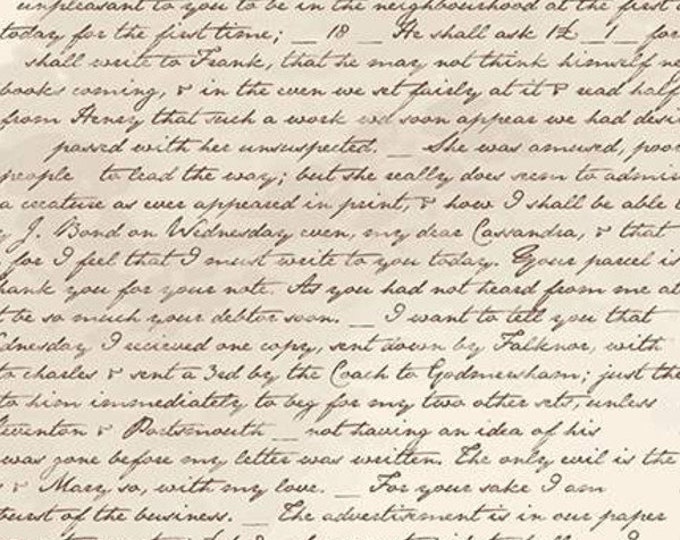 unpleasant to you to be in the neighbourhood at the first
today for the first time; _ 18 _ He shall ask 1£ _ 1 _ for
shall write to Frank, that he may not think himself ne
books coming, & in the even we set fairly at it & read half
from Henry that such a work wd soon appear we had desi
passed with her unsuspected. _ She was amused, poor
people to lead the way; but she really does seem to admir
a creature as ever appeared in print, & how I shall be able
y J. Bond on Wednesday even, my dear Cassandra, & that
for I feel that I must write to you today. Your parcel is
hank you for your note. As you had not heard from me at
t be so much your debtor soon. _ I want to tell you that
dnesday I recieved one copy, sent down by Falknor, with
to charles & sent a 3rd by the Coach to Godmersham; just the
to him immediately to beg for my two other sets, unless
teventon & Portsmouth _ not having an idea of his
was gone before my letter was written. The only evil is the
& Mary so, with my love. _ For your sake I am
burst of the business. _ The advertisement is in our paper